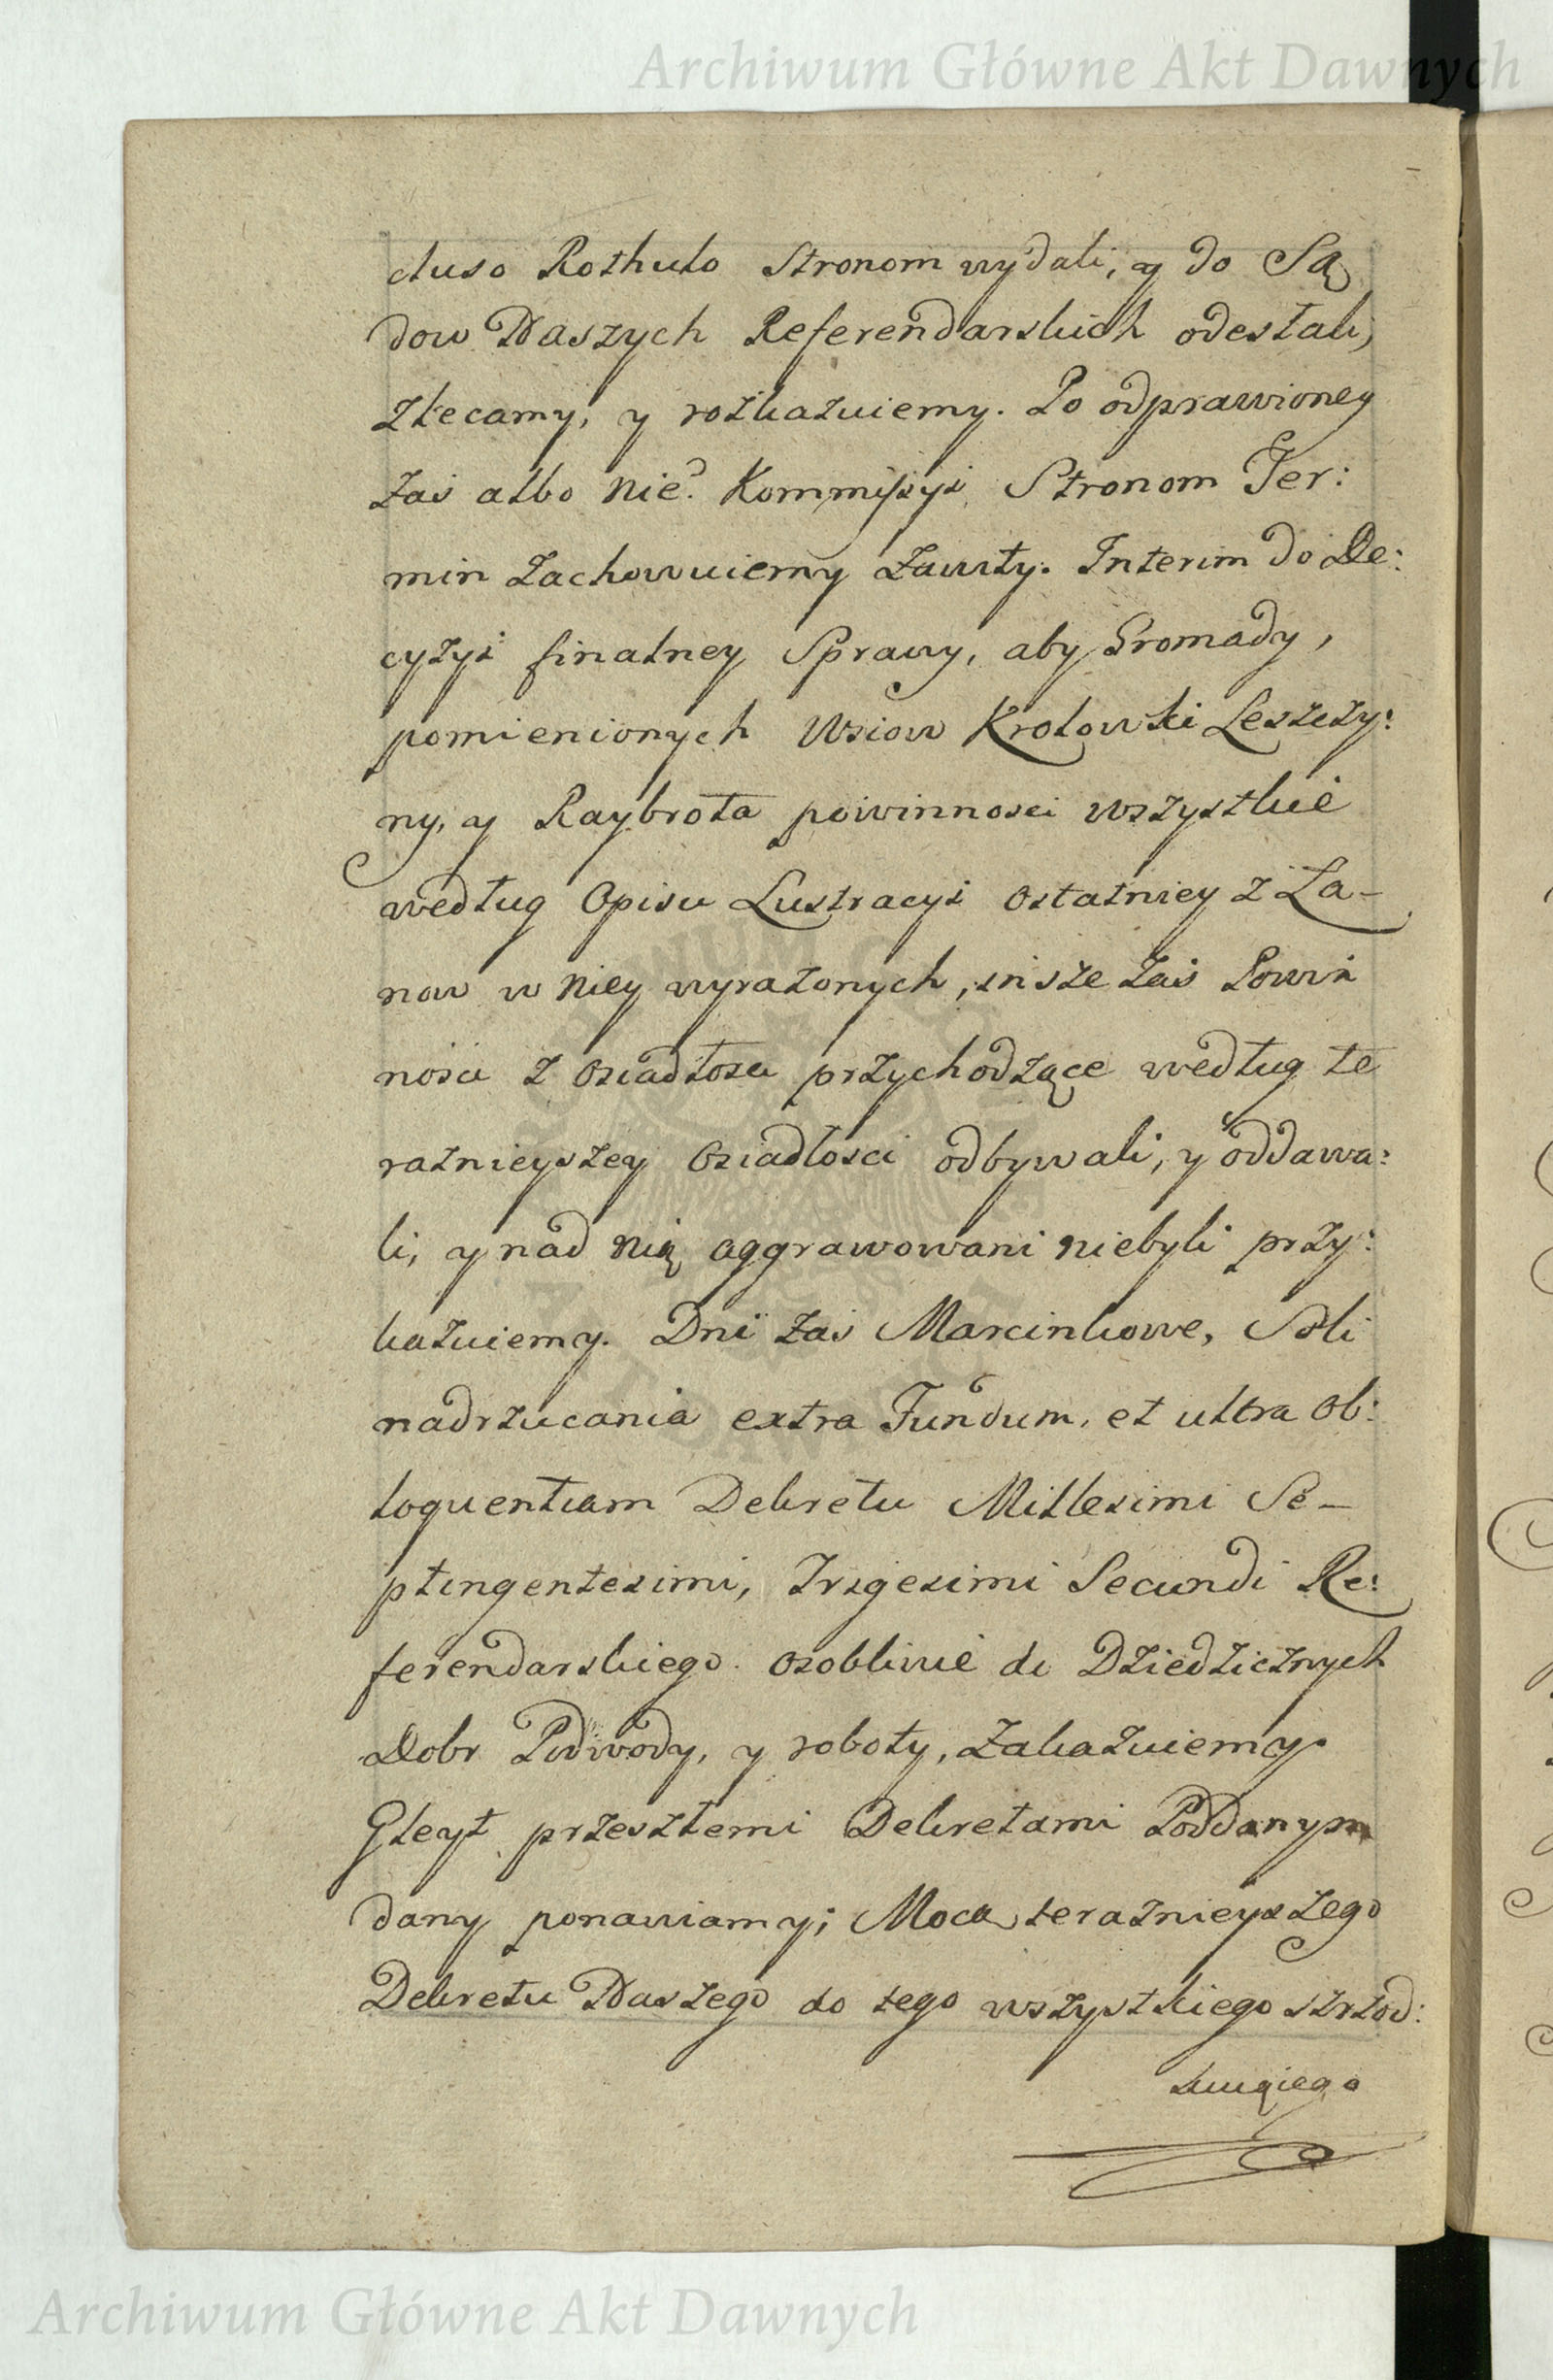 Archiwum Główne Akt Dawnych
cluso Rothulo Stronom wydali, y do Są
dow Naszych Referendarskich odesłali,
zlecamy, y rozkazuiemy. Po odprawioney
zaś albo nie? Kommissyi Stronom Ter:
min zachowuiemy zawity. Interim do De:
cyzyi finalney Sprawy, aby Gromady,
pomienionych Wsiow Krolowki Leszczy:
ny, y Raybrota powinnosci wszystkie
według Opisu Lustracyi ostatniey z Ła-
now w niey wyrażonych, insze zaś Powin
nosci z osiadłosci przychodzące według te
raznieyszey Osiadłosci odbywali, y oddawa:
li, y nad nią aggrawowani niebyli przy:
kazuiemy. Dni zaś Marcinkowe, Soli
nadrzucania extra Fundum, et ultra Ob:
loquentiam Dekretu Millesimi Se-
ptingentesimi, Trigesimi Secundi Re:
ferendarskiego. osobliwie do Dziedzicznych
Dobr Podwody, y roboty, zakazuiemy.
Gleyt przeszłemi Dekretami Poddanym
dany ponawiamy; Mocą teraznieyszego
Dekretu Naszego do tego wszystkiego
Archiwum Główne Akt Dawnych